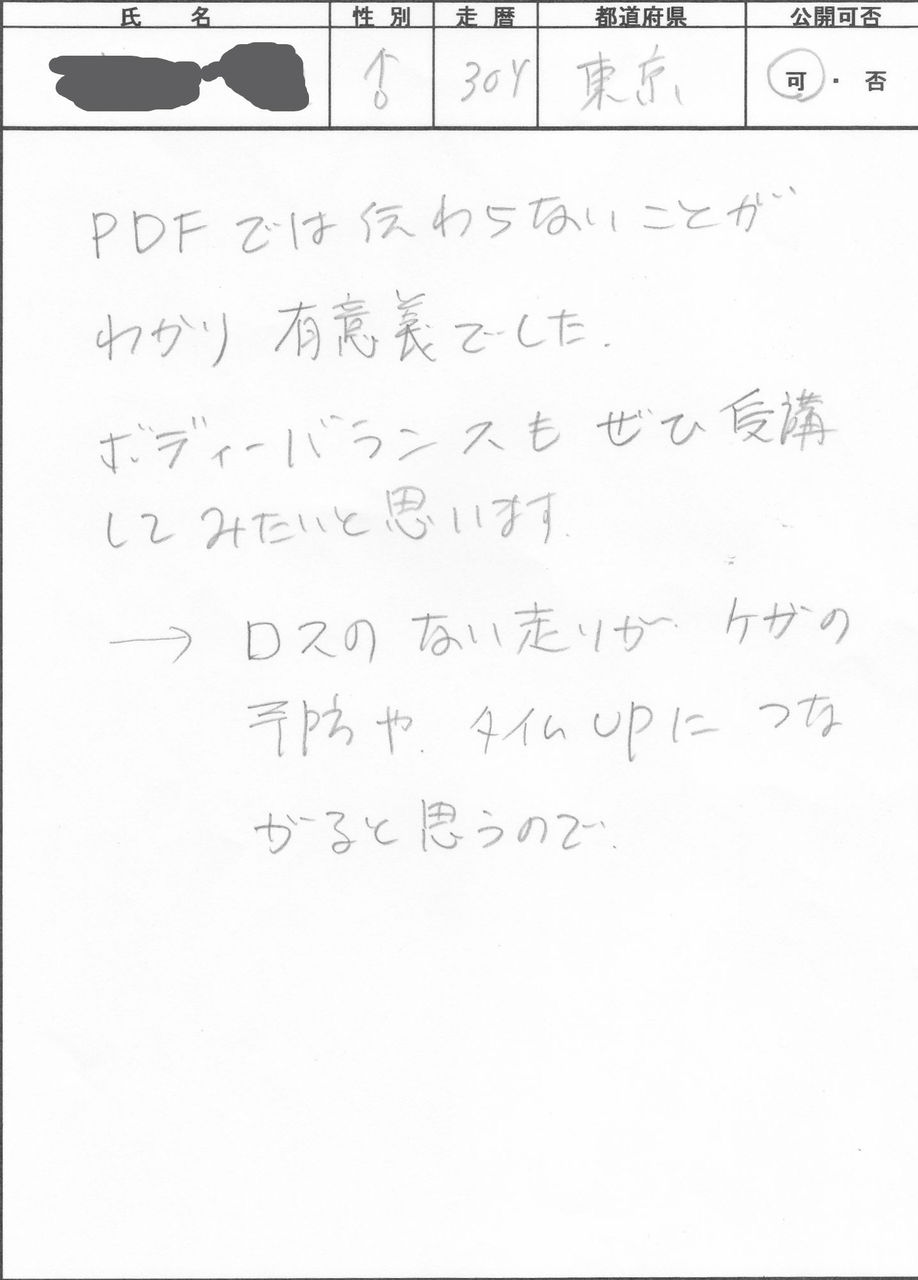 氏 名 性別 走暦 都道府県 公開可否
♂ 30Y 東京 可・否
PDFでは伝わらないことが
わかり 有意義でした.
ボディーバランスも ぜひ 受講
してみたいと思います.
→ ロスのない走りが ケガの
予防や タイムUPに つな
がると思うので.